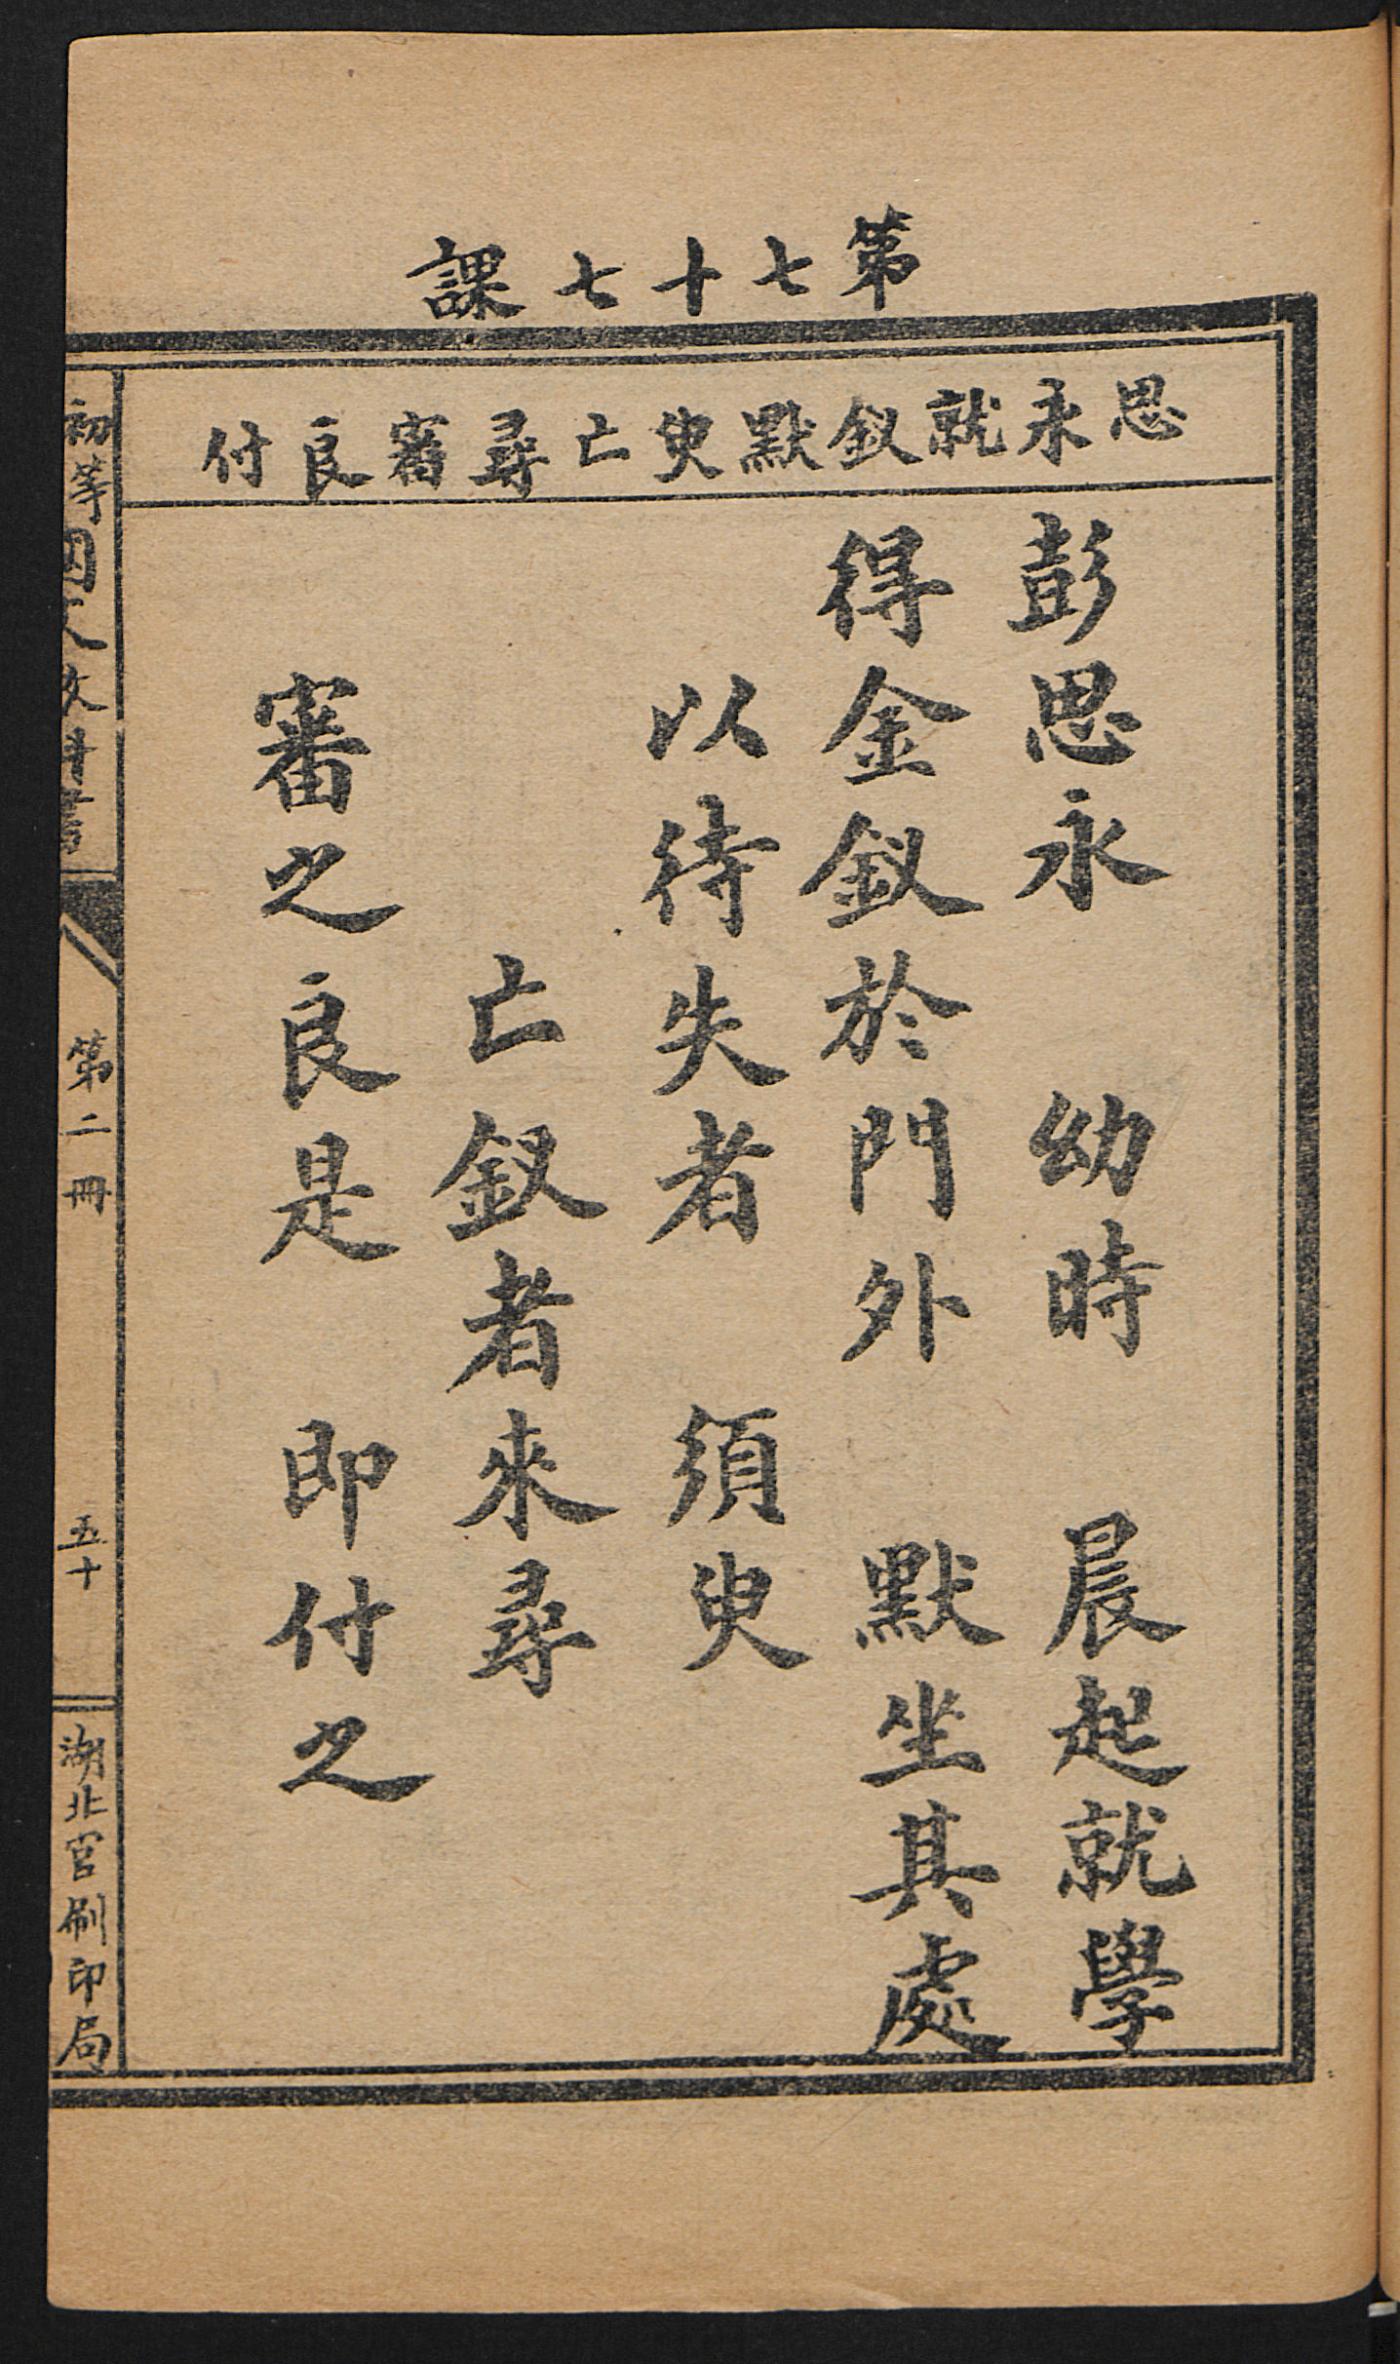 第七十七課
思永就釵默臾亡尋審良付
彭思永 幼時 晨起就學
得金釵於門外 默坐其處
以待失者 須臾
亡釵者來尋
審之良是 即付之
初等國文教科書 第二冊 五十 湖北官刷印局